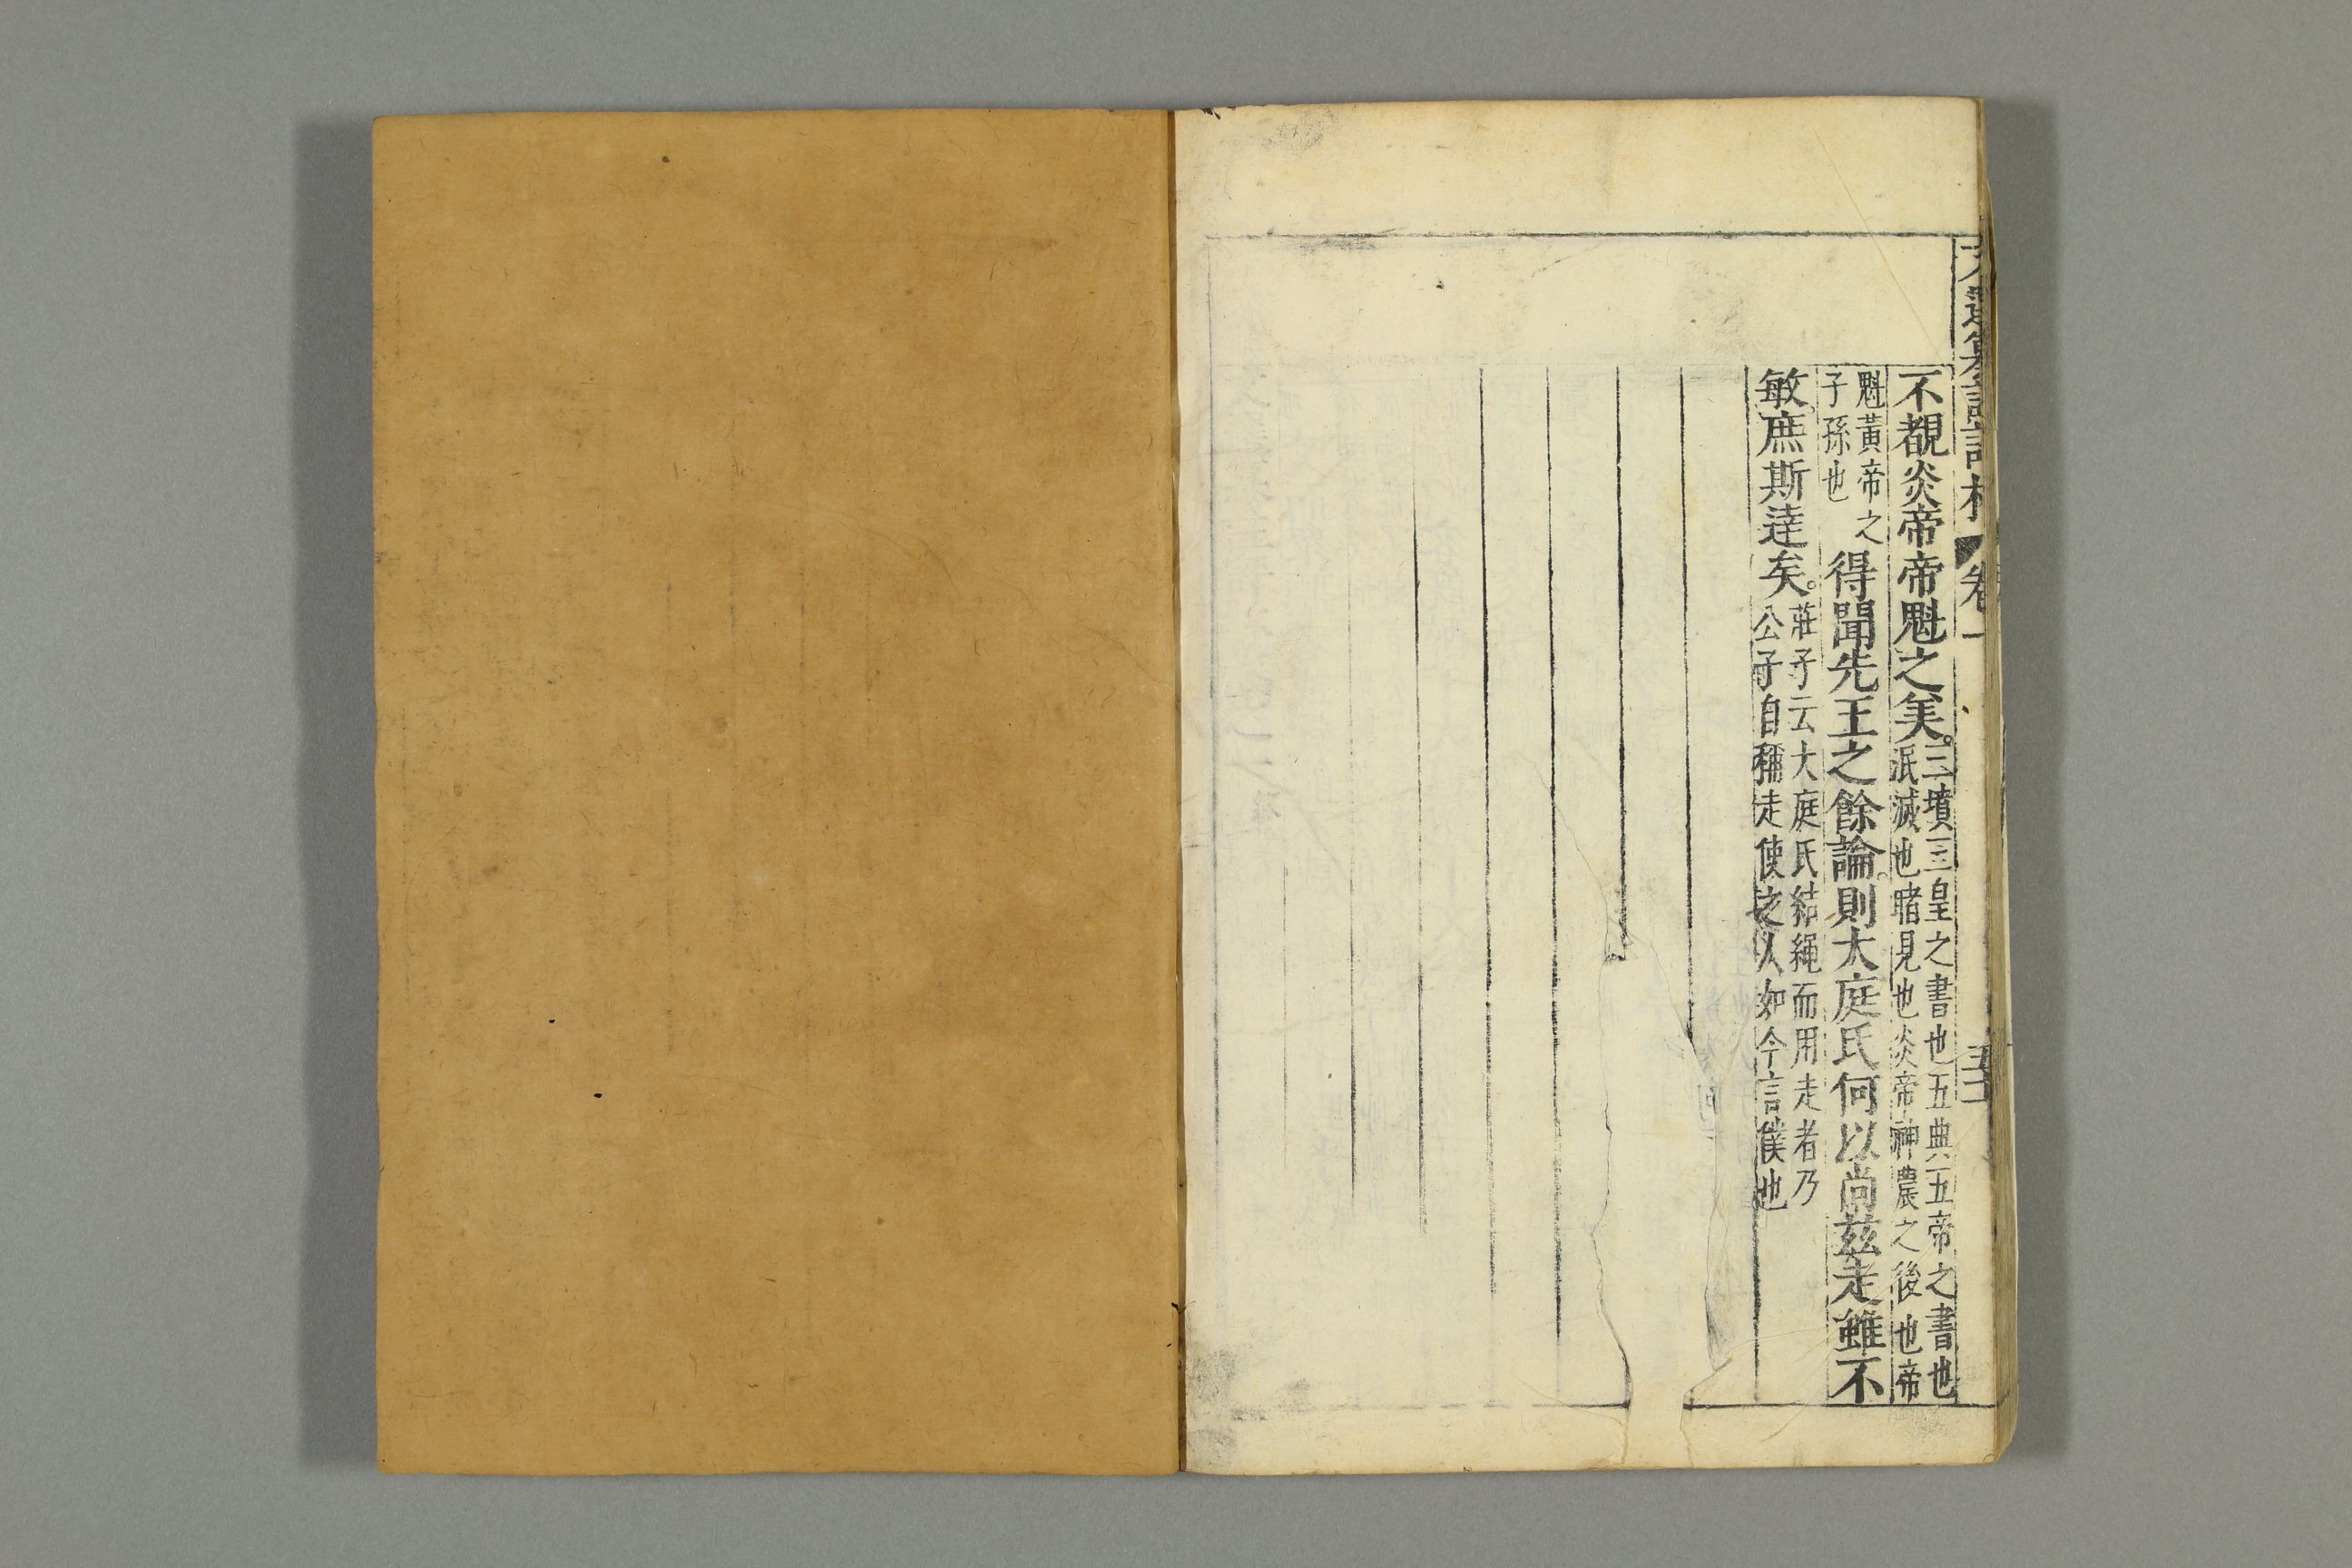 不覩炎帝帝魁之羙。三墳三皇之書也五典五帝之書也
泯滅也睹見也炎帝神農之後也帝
魁黃帝之
子孫也
得聞先王之餘論。則大庭氏何以尚兹走雖不
敏。庶斯達矣。莊子云大庭氏結繩而用走者乃
公子自稱走使之人如今言僕也
卷一
五十